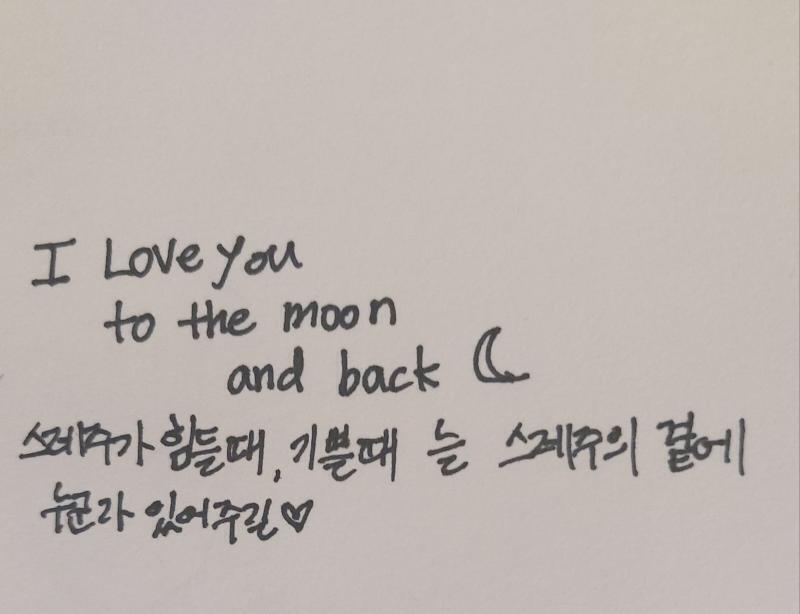 I Love you
to the moon
and back
스레주가 힘들때, 기쁠때 늘 스레주의 곁에
누군가 있어주길♡